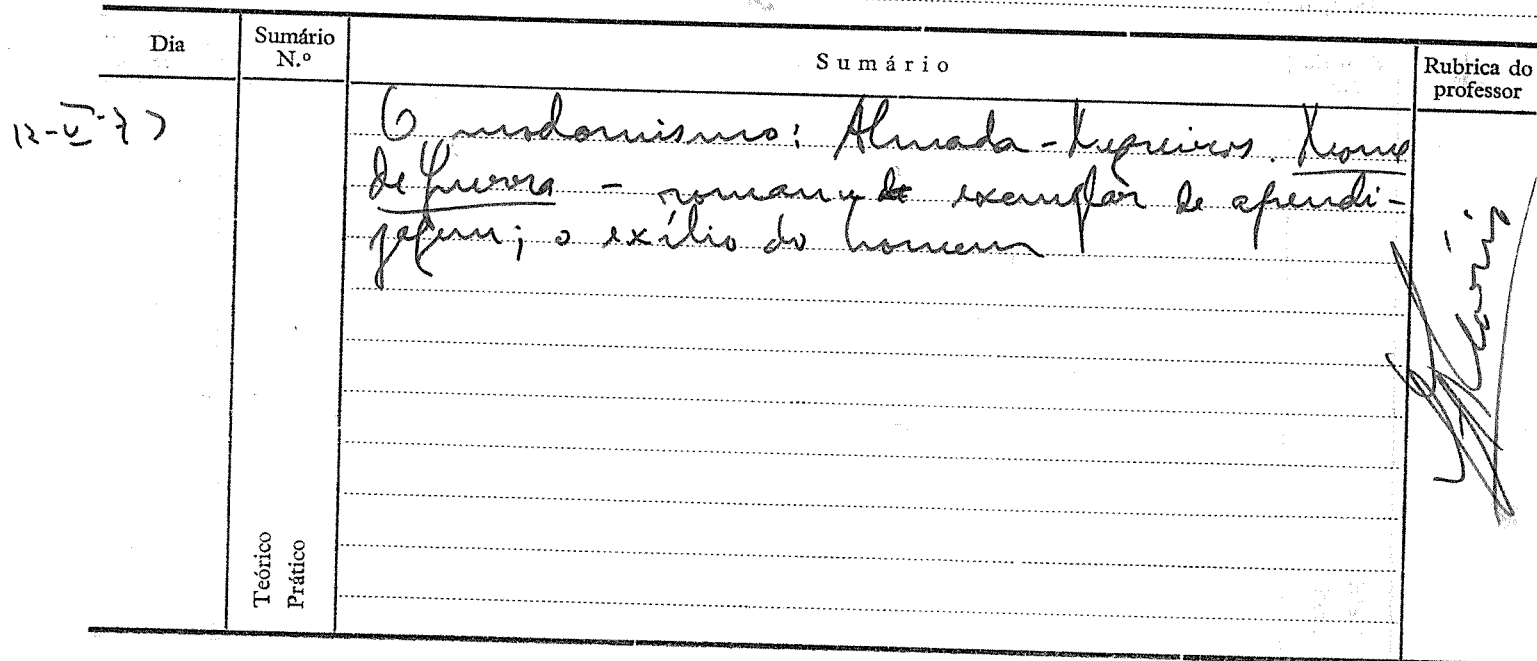 Dia
Sumário
N.º
Sumário
Rubrica do
professor
12-V-77
O modernismo: Almada-Negreiros. Nome
de Guerra - romance exemplar de aprendi-
zagem; o exílio do homem
Teórico
Prático